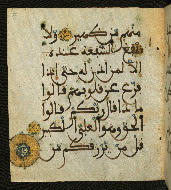 منهم من ظهير ولا
تنفع الشفعة عنده
إلا لمن أذن له حتى إذا
فزع عن قلوبهم قالوا
ماذا قال ربكم قالوا
الحق وهو العلي الكبير
قل من يرزقكم من